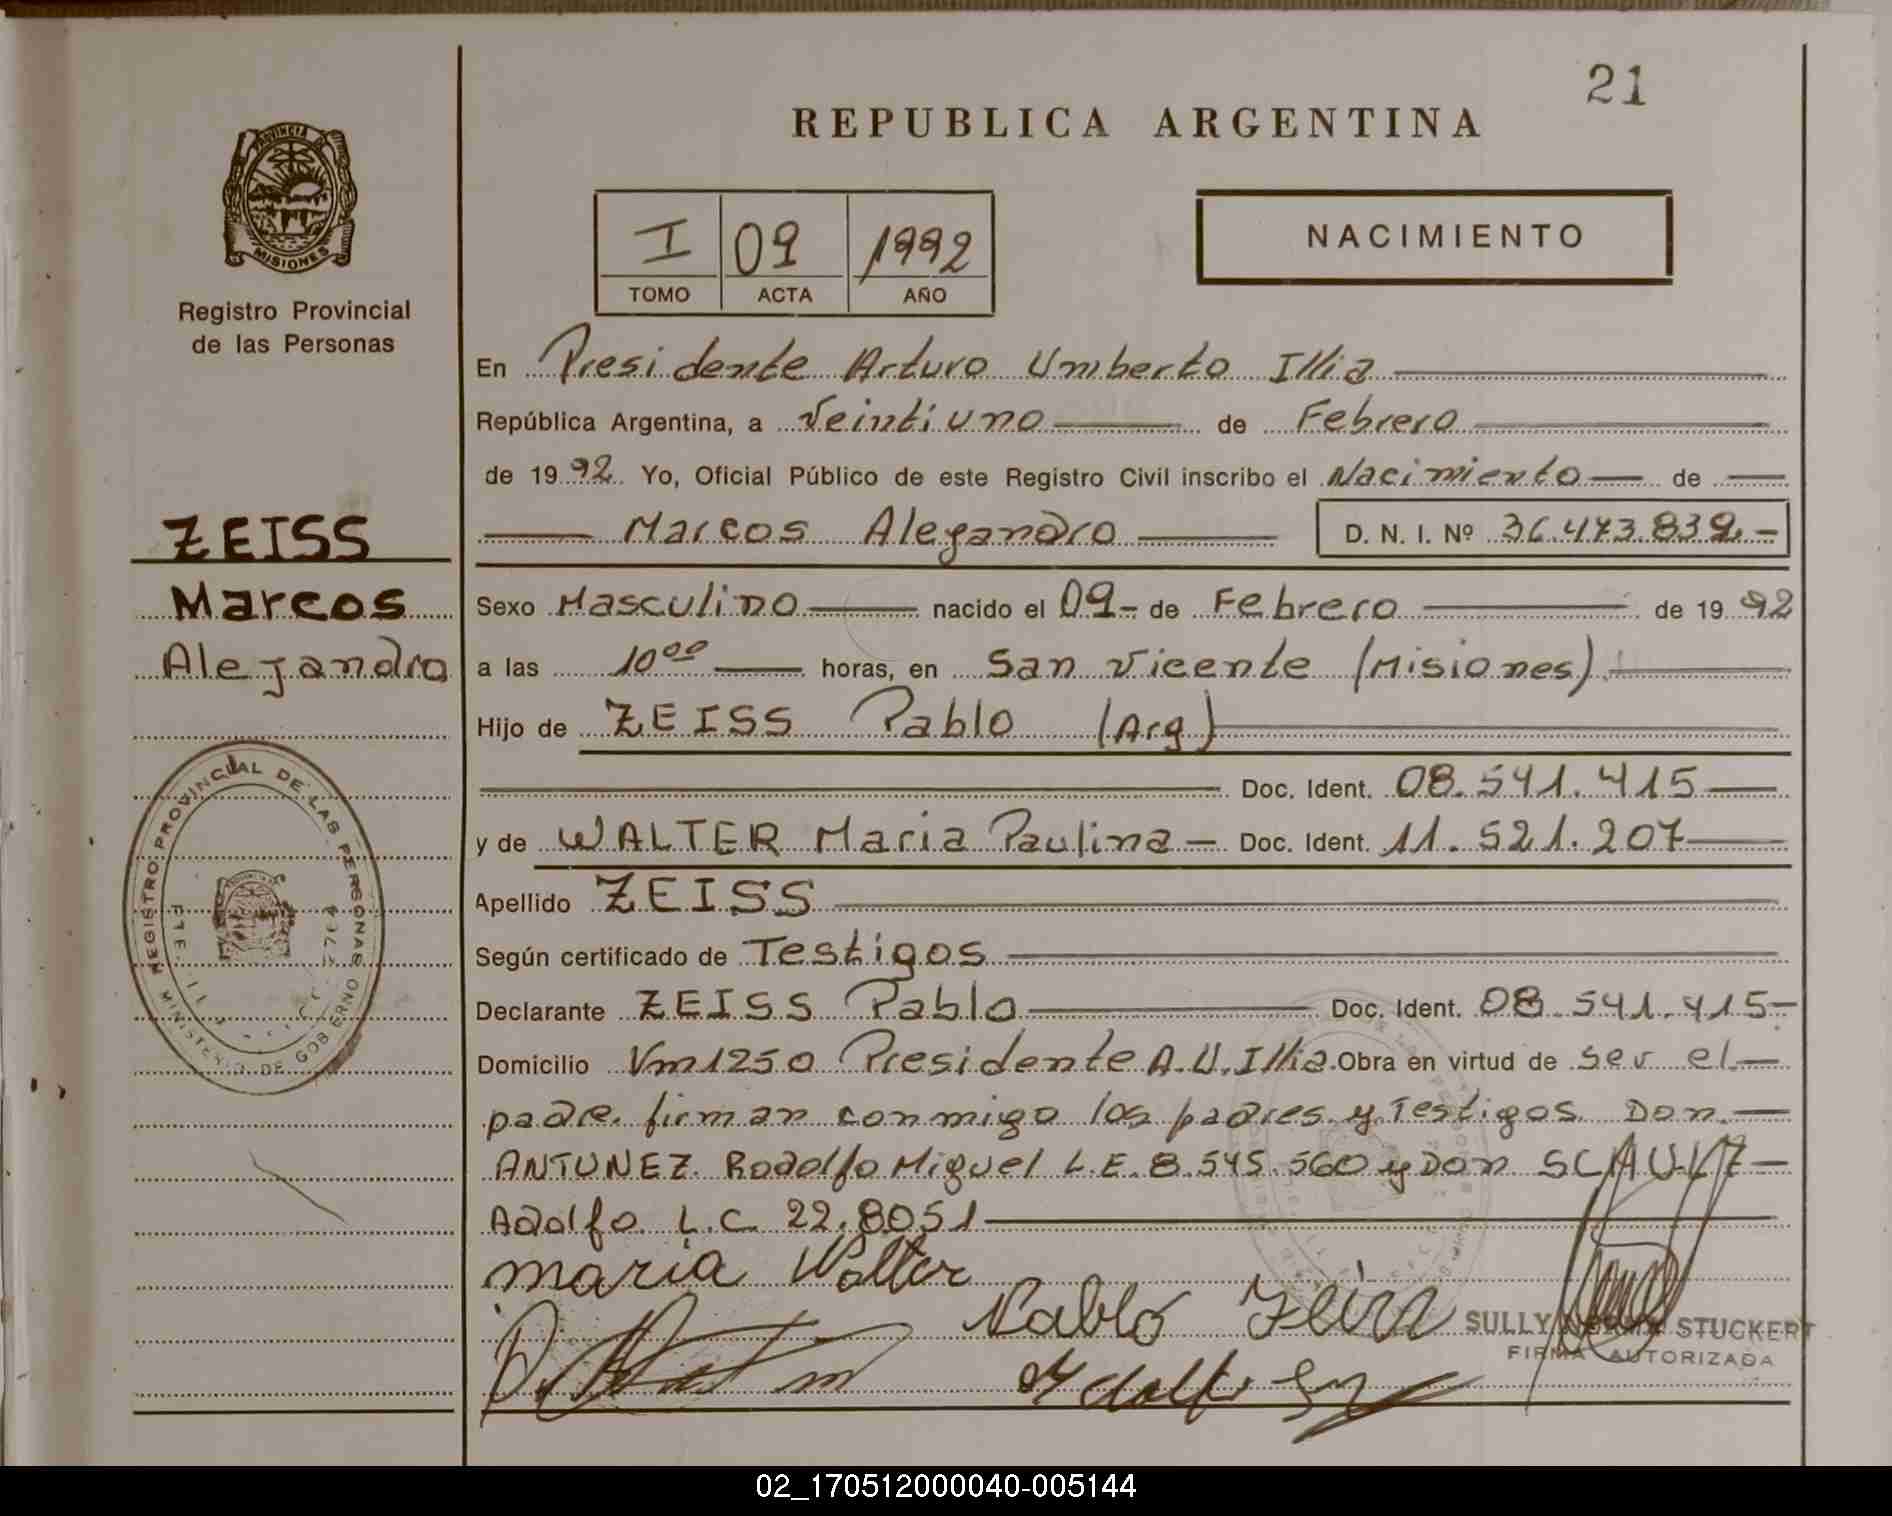 21
REPUBLICA ARGENTINA
PROVINCIA
MISIONES
Registro Provincial
de las Personas
I 09 1992
TOMO ACTA AÑO
NACIMIENTO
En Presidente Arturo Umberto Illia
República Argentina, a Veintiuno de Febrero
de 1992. Yo, Oficial Público de este Registro Civil inscribo el Nacimiento de
Marcos Alejandro D. N. I. Nº 36.473.839.-
ZEISS
Marcos
Alejandro
Sexo Masculino nacido el 09- de Febrero de 1992
a las 10⁰⁰ horas, en San Vicente (Misiones).
Hijo de ZEISS Pablo (Arg)
Doc. Ident. 08.541.415
y de WALTER Maria Paulina - Doc. Ident. 11.521.207
Apellido ZEISS
Según certificado de Testigos
Declarante ZEISS Pablo Doc. Ident. 08.541.415-
Domicilio Vm1250 Presidente A.U.Illia. Obra en virtud de ser el
padre. firman conmigo los padres y Testigos Don.
ANTUNEZ Rodolfo Miguel L.E. 8.545.560 y Don
Adolfo L.C. 22.8051
REGISTRO PROVINCIAL DE LAS PERSONAS
MINISTERIO DE GOBIERNO
maria Walter
Pablo Zeiss
SULLY STUCKERT
FIRMA AUTORIZADA
02_170512000040-005144